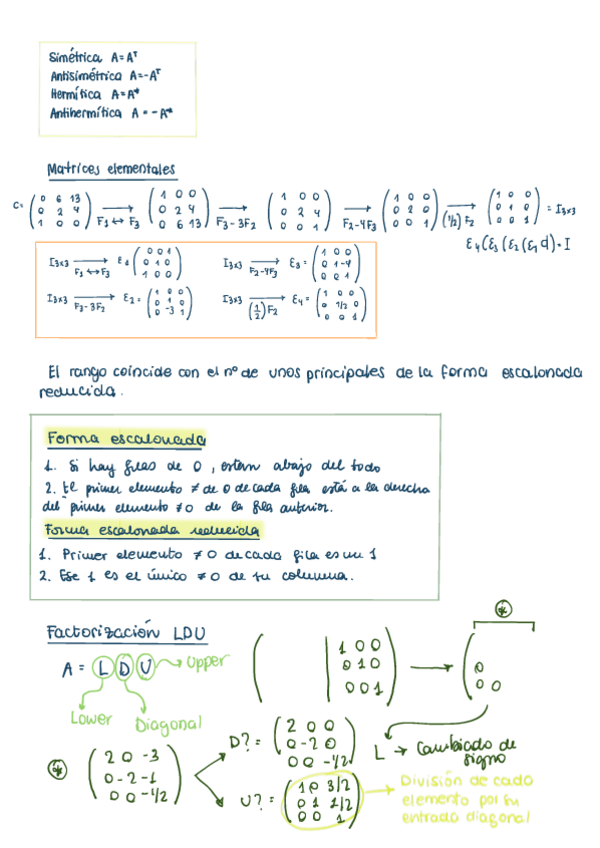 Simétrica A=Aᵀ
Antisimétrica A=-Aᵀ
Hermítica A=A*
Antihermítica A=-A*
Matrices elementales
C= (0 6 13 / 0 2 4 / 1 0 0) → F1↔F3 (1 0 0 / 0 2 4 / 0 6 13) → F3-3F2 (1 0 0 / 0 2 4 / 0 0 1) → F2-4F3 (1 0 0 / 0 2 0 / 0 0 1) → (1/2)F2 (1 0 0 / 0 1 0 / 0 0 1) = I3x3
ε4(ε3(ε2(ε1 d)=I
I3x3 → F1↔F3 ε1 (0 0 1 / 0 1 0 / 1 0 0) I3x3 → F2-4F3 ε3= (1 0 0 / 0 1 -4 / 0 0 1)
I3x3 → F3-3F2 ε2= (1 0 0 / 0 1 0 / 0 -3 1) I3x3 → (1/2)F2 ε4= (1 0 0 / 0 1/2 0 / 0 0 1)
El rango coincide con el nº de unos principales de la forma escalonada
reducida.
Forma escalonada
1. Si hay filas de 0, estan abajo del todo
2. El primer elemento ≠ de 0 de cada fila está a la derecha
del primer elemento ≠0 de la fila anterior.
Forma escalonada reducida
1. Primer elemento ≠0 de cada fila es un 1
2. Ese 1 es el único ≠0 de su columna.
Factorización LDU
A = L D U → Upper
Lower Diagonal
( | 1 0 0 / 0 1 0 / 0 0 1) → (0 / 0 0
L → Cambiado de
signo
(2 0 -3 / 0 -2 -1 / 0 0 -1/2)
D?= (2 0 0 / 0 -2 0 / 0 0 -1/2)
U?= (1 0 3/2 / 0 1 1/2 / 0 0 1) → División de cada
elemento por su
entrada diagonal